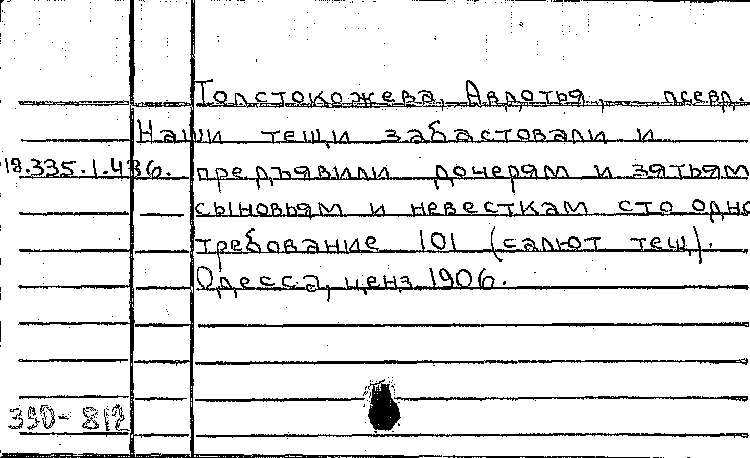 Толстокожева, Авдотья, псевд.
Наши тещи забастовали и
18.335.1.436. предъявили дочерям и зятьям
сыновьям и невесткам сто одно
требование 101 (салют тещ).
Одесса, ценз. 1906.
390-812